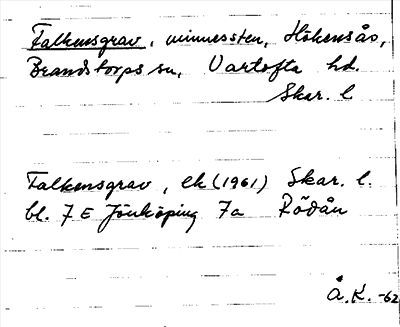 Falkensgrav, minnessten, Hökensås,
Brandstorps sn, Vartofta hd.
Skar. l
Falkensgrav, ek (1961) Skar. l.
bl. 7 E Jönköping 7a Rödån
Å.K. -62